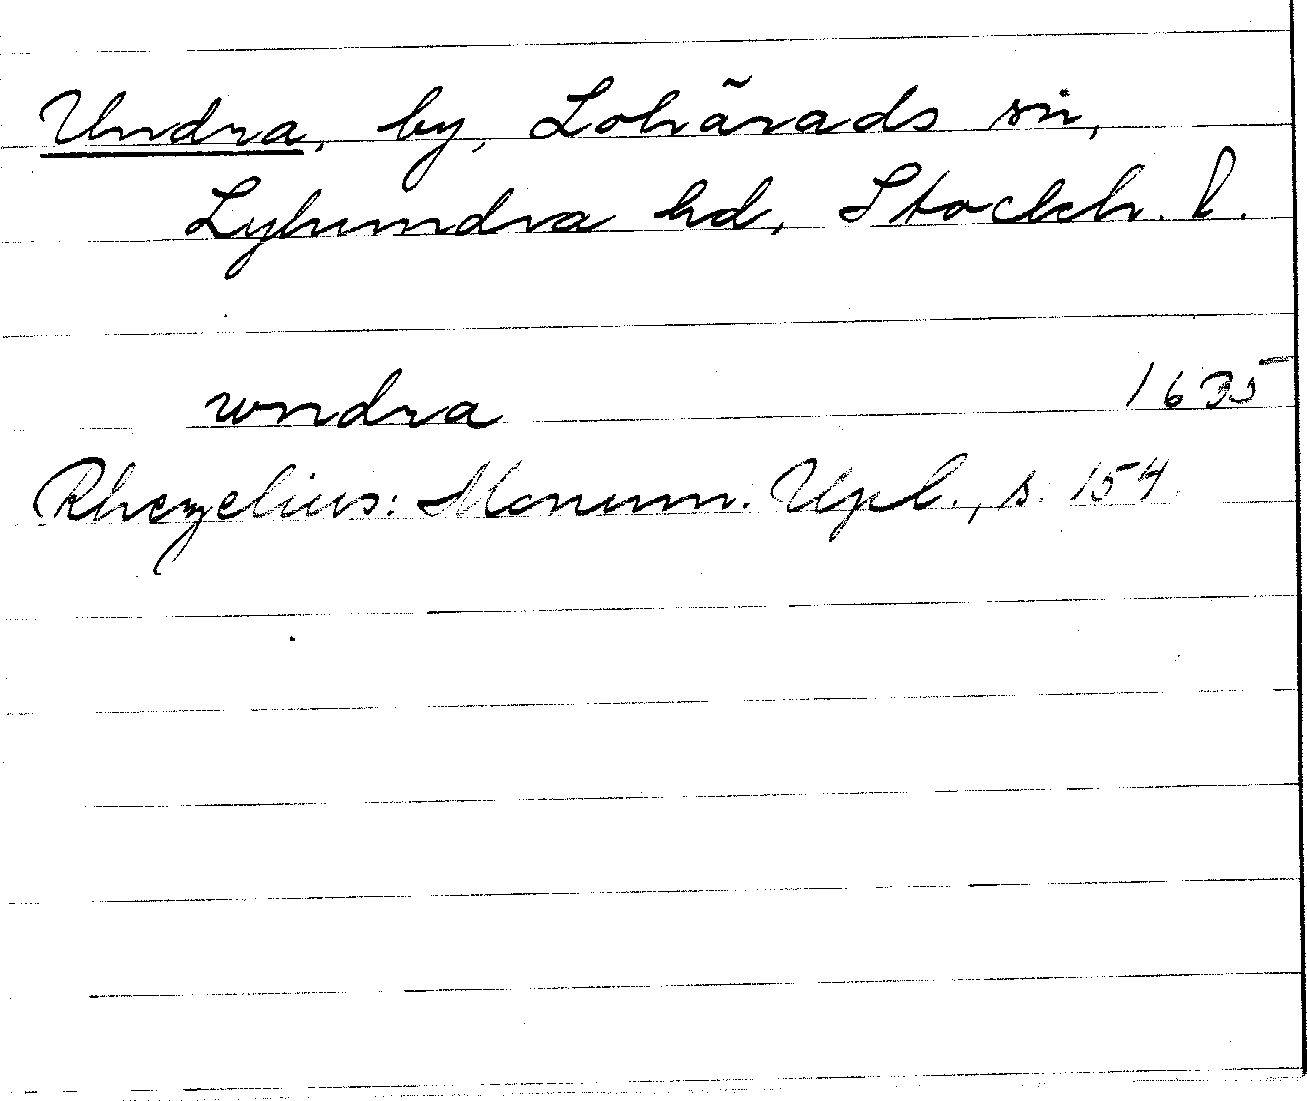 Undra, by, Lohärads sn,
Lyhundra hd, Stockh. l.
wndra 1635
Rhezelius: Monum. Upl., s. 154